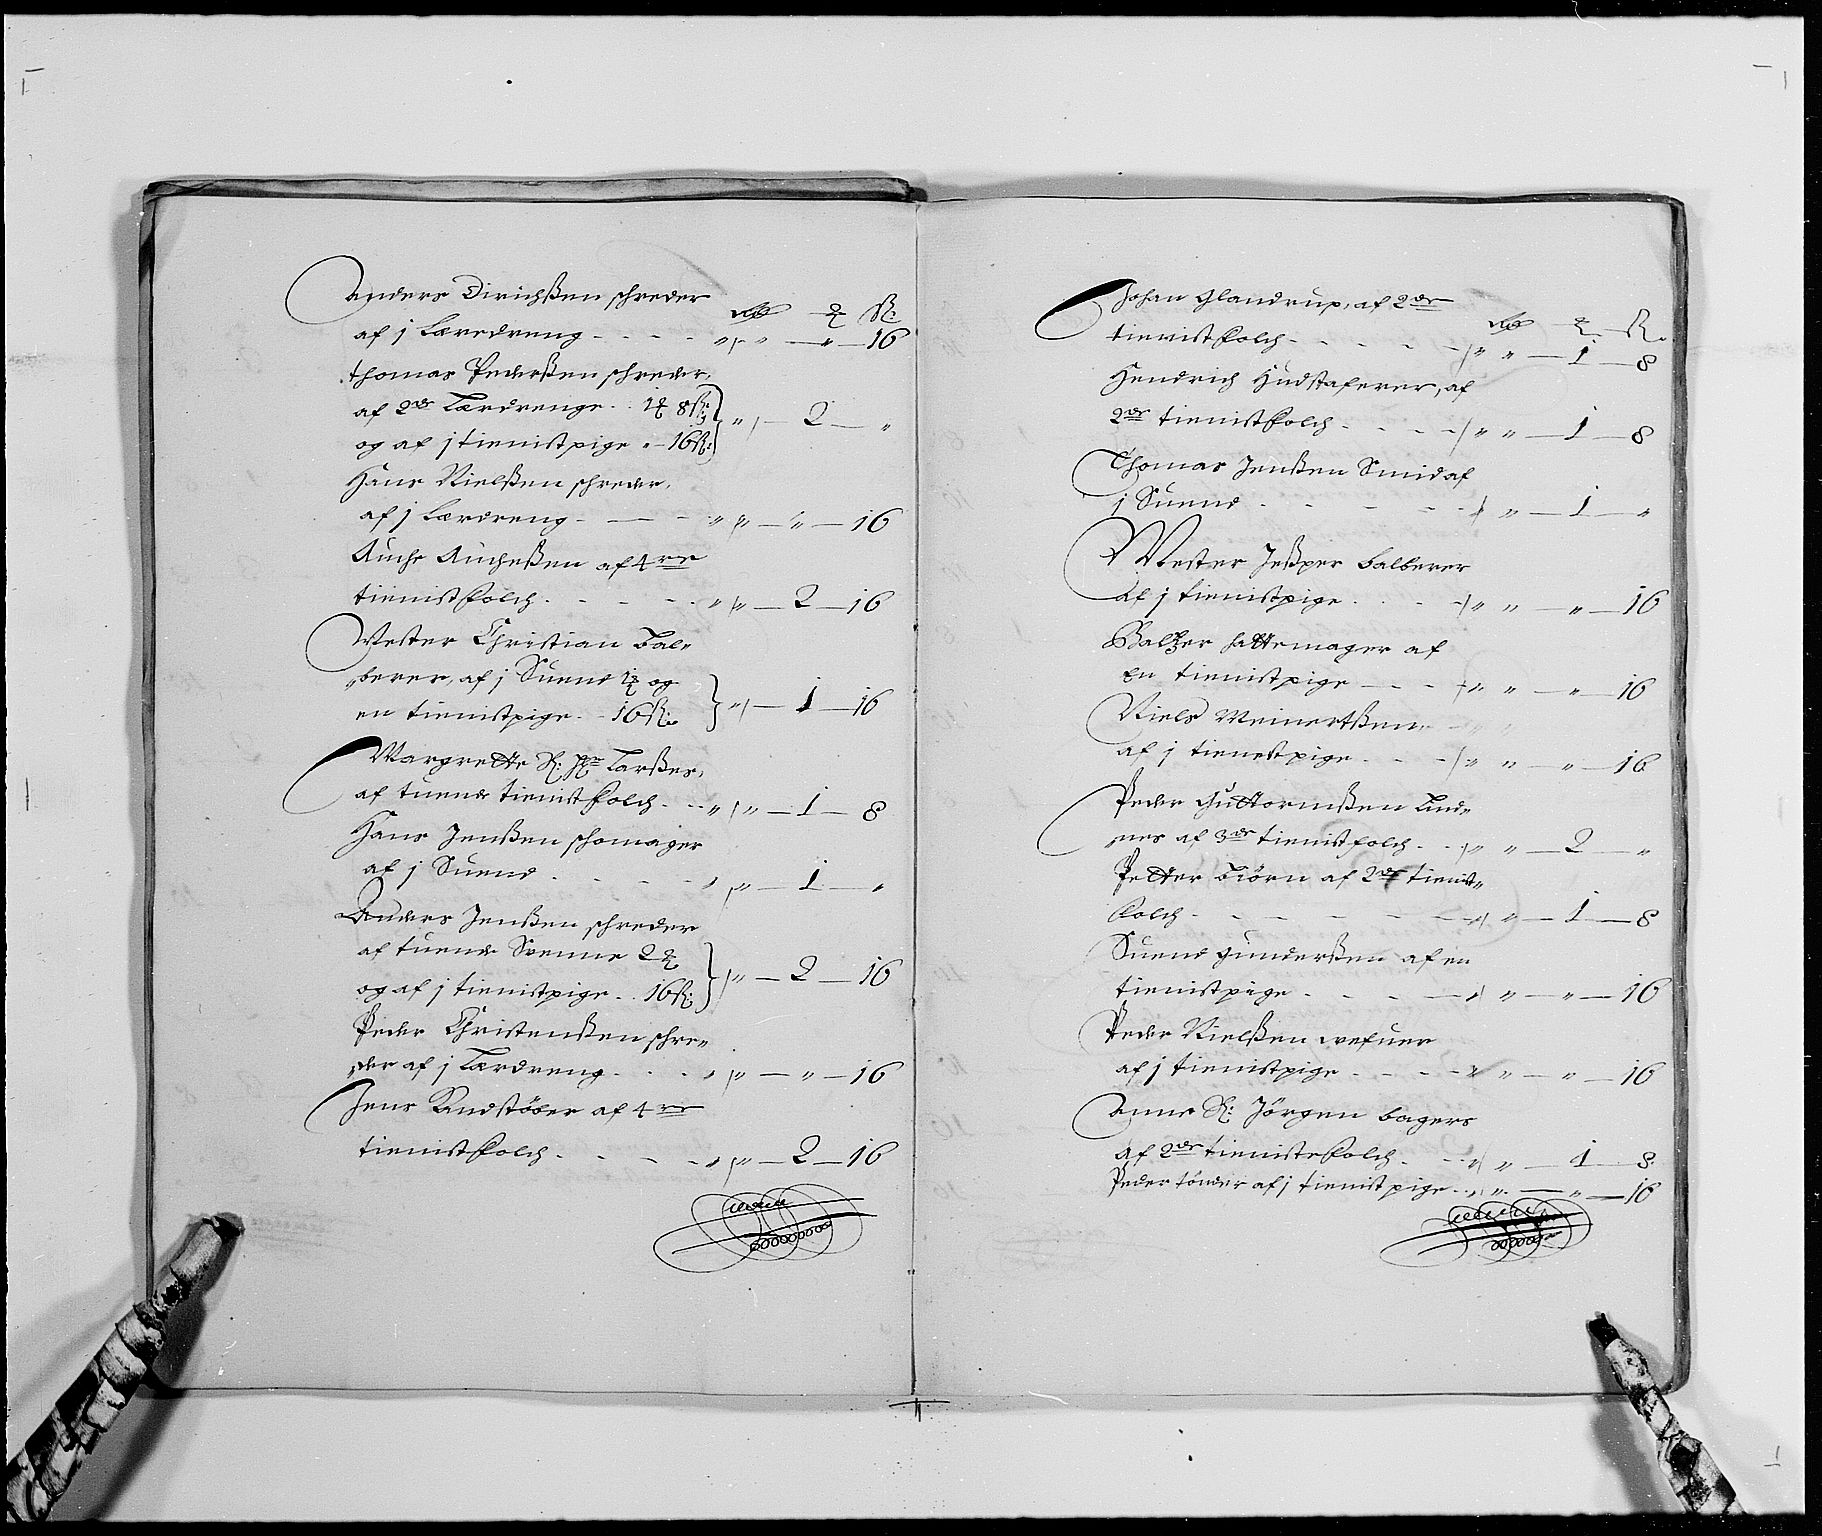 Anders Dirichßen schreder
Rdr ꝣ ß:
af j Læredreng - - - - " " — " — 16
Thomas Pederßen schreder,
af 2de Lærdrenge .. 1ꝣ 8ß:
" — 2 — "
og af j tienistpige " — 16ß:
Hans Nielßen schreder,
af j Lærdreng - — - " " — " — 16
Auche Aucheßen af 4re
tienistfolch - - - - " " — 2 — 16
Mester Christian Bal=
=berer, af j Suend 1ꝣ og
" — 1 — 16
en tienistpige - - 16ß:
Margrette S: Hr Larßes,
af tuende tienistfolch - - " " — 1 — 8
Hans Jenßen schomager
af j Suend - - - - " " — 1 — "
Anders Jenßen schreder
af tuende Svenne 2ꝣ
" — 2 — 16
og af j tienistpige .. 16ß:
Peder Christenßen schre=
=der af j Lærdreng - - - " " — " — 16
Jens Kandstøber af 4re
tienistfolch - - - - " " — 2 — 16

Johan Glandrup, af 2de
Rdr ꝣ ß:
tienistfolch - - - - " " — 1 — 8
Hendrich Hudstaferer, af
2de tienistfolch - - - - " " — 1 — 8
Thomas Jenßen Smid af
j Suend - - - - " " — 1 — "
Mester Jeßper balberer
af j tienistpige - - - " " — " — 16
Baltzer Hattemager af
En tienistpige — - - " " — " — 16
Niels Meinertßen
af j tienestpige - - - " " — " — 16
Peder Guttormßen Lund=
=nes af 3de tienistfolch - - " " — 2 — "
Petter Biörn af 2de tienist=
folch - - - - - - " " — 1 — 8
Suend Gunderßen af en
tienistpige - - - - " " — " — 16
Peder Nielßen vefuer
af j tienistpige - - - - " " — " — 16
Anne S: Jörgen bagers
af 2de tienistefolch - - " " — 1 — 8
Peder tönder af j tienistpige - - " " — " — 16